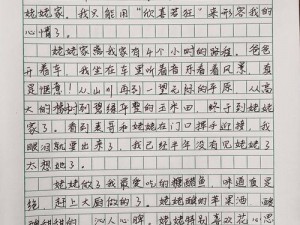 姥姥家。我只能用“欣喜若狂”来形容我的
心情了。
姥姥家离我家有4个小时的路程。爸爸
开着车，我坐在车里听着音乐看着风景，真
是惬意！从山川再到一望无际的平原，从高
大的楼
列整得整的玉米田，终于到姥姥
家了。看到表哥和姥姥在门口挥手迎接，我
眼泪就要出来了，我已经半年没有见姥姥了
太想她了。
姥姥做了我最爱吃的糖醋鱼，味道真是
绝，赶上大厨做的了。姥姥酿的苹果酒，酸
甜甜的
沁人心脾。姥姥特别喜欢花心思